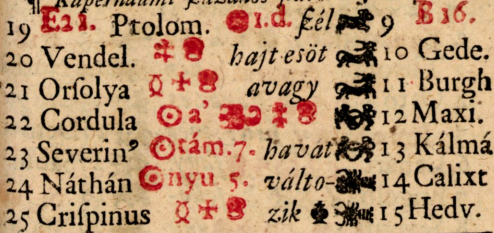 Kapernaumi
19 E21. Ptolom. ☉1.d. ſzél 9 B 16.
20 Vendel. hajt esöt 10 Gede.
21 Orſolya ☿ avagy 11 Burgh
22 Cordula ☉ a' 12 Maxi.
23 Severinꝰ ☉tám.7. havat 13 Kálmá
24 Náthán ☉nyu 5.válto- 14 Calixt
25 Criſpinus ☿ zik 15 Hedv.